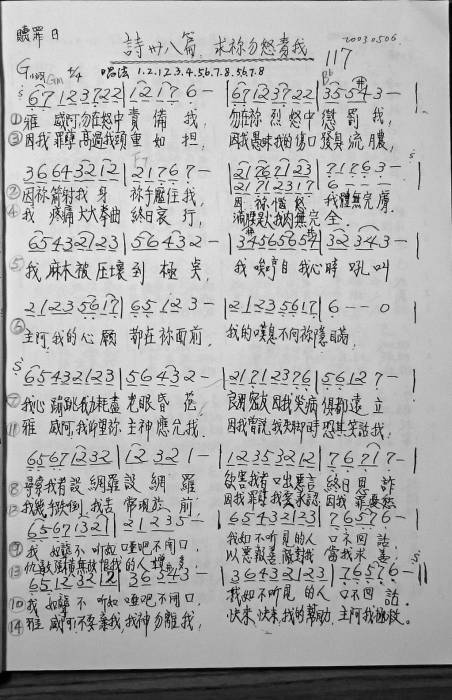 贖罪日
詩卅八篇. 求祢勿怒責我
20030506
117
G 4/4 唱法 1.2.1.2.3.4.5.6.7.8.5.6.7.8
67123722 | 1217 6 — | 6712 3722 | 35543 — |
①雅威阿勿在怒中責備我, 勿在祢烈怒中懲罰我,
③因我罪孽高過我頭重如担, 因我愚昧我的傷口發臭流膿,
36643212 | 21767 — | 21767123 | 71763 —
21712317 | 6 — — —
②因祢箭射我身祢手壓住我, 因祢惱怒我體無完膚.
④我疼痛大大拳曲終日哀行, 滿腰是火我肉無完全.
65432123 | 56432 — | 34565654 | 32343 — |
⑤我麻木被压壞到極矣, 我唉哼自我心時吼叫
21235617 | 65123 — | 21235617 | 6 — — 0 |
⑥主阿我的心願都在祢面前, 我的嘆息不向祢隱瞞,
65432123 | 56432 — | 21712376 | 56127 — |
⑦我心蹦跳我力耗盡光眼昏花, 良朋密友因我災病俱都遠立
⑪雅威阿,我仰望祢主神應允我, 因我曾說,我失脚時恐其笑話我,
65671232 | 12321 — | 12353212 | 76717 — |
⑧尋索我者設網羅設網羅 欲害我者口出惡言終日思詐
⑫我幾乎跌倒,我苦常現於前, 因我罪孽我要承認因我罪憂愁
65671321 | 21235 — | 65432123 | 76576 —
⑨我如聾不听如啞吧不開口, 我如不听見的人口不回話.
⑬仇敵 無故恨我的人增多, 以惡報善敵對我當我求善;
65123212 | 36543 — | 36432123 | 76576 — ||
⑩我如聾不听如啞吧不開口, 我如不听見的人口不回話.
⑭雅威阿,不要棄我,我神勿離我, 快來快來,我的幫助,主阿我拯救.